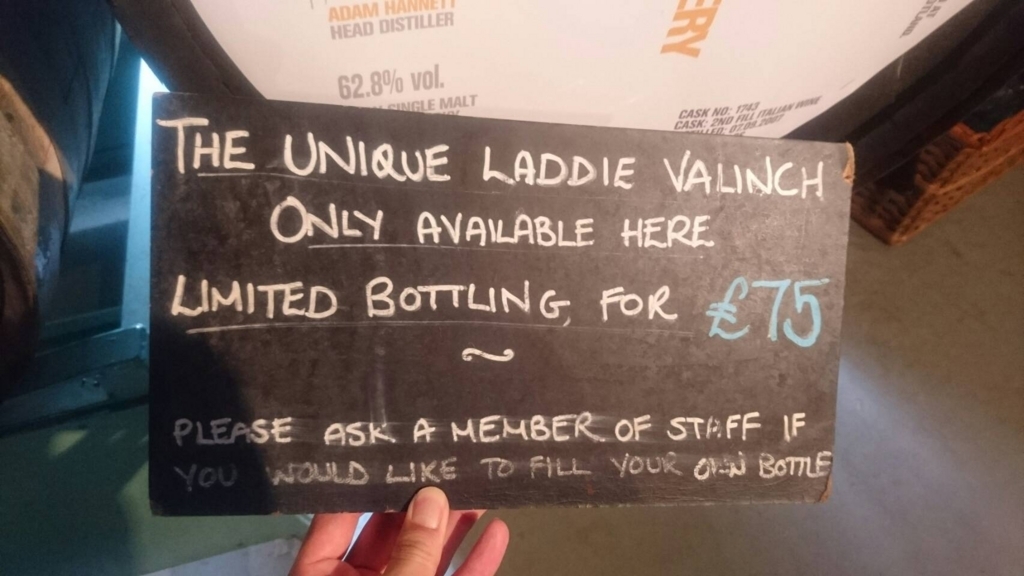 ADAM HANNETT
HEAD DISTILLER
62.8% vol.
SINGLE MALT
ERY
CASK NO: 1743
CASK: 2ND FILL ITALIAN WINE
THE UNIQUE LADDIE VALINCH
ONLY AVAILABLE HERE
LIMITED BOTTLING, FOR £75
~
PLEASE ASK A MEMBER OF STAFF IF
YOU WOULD LIKE TO FILL YOUR OWN BOTTLE